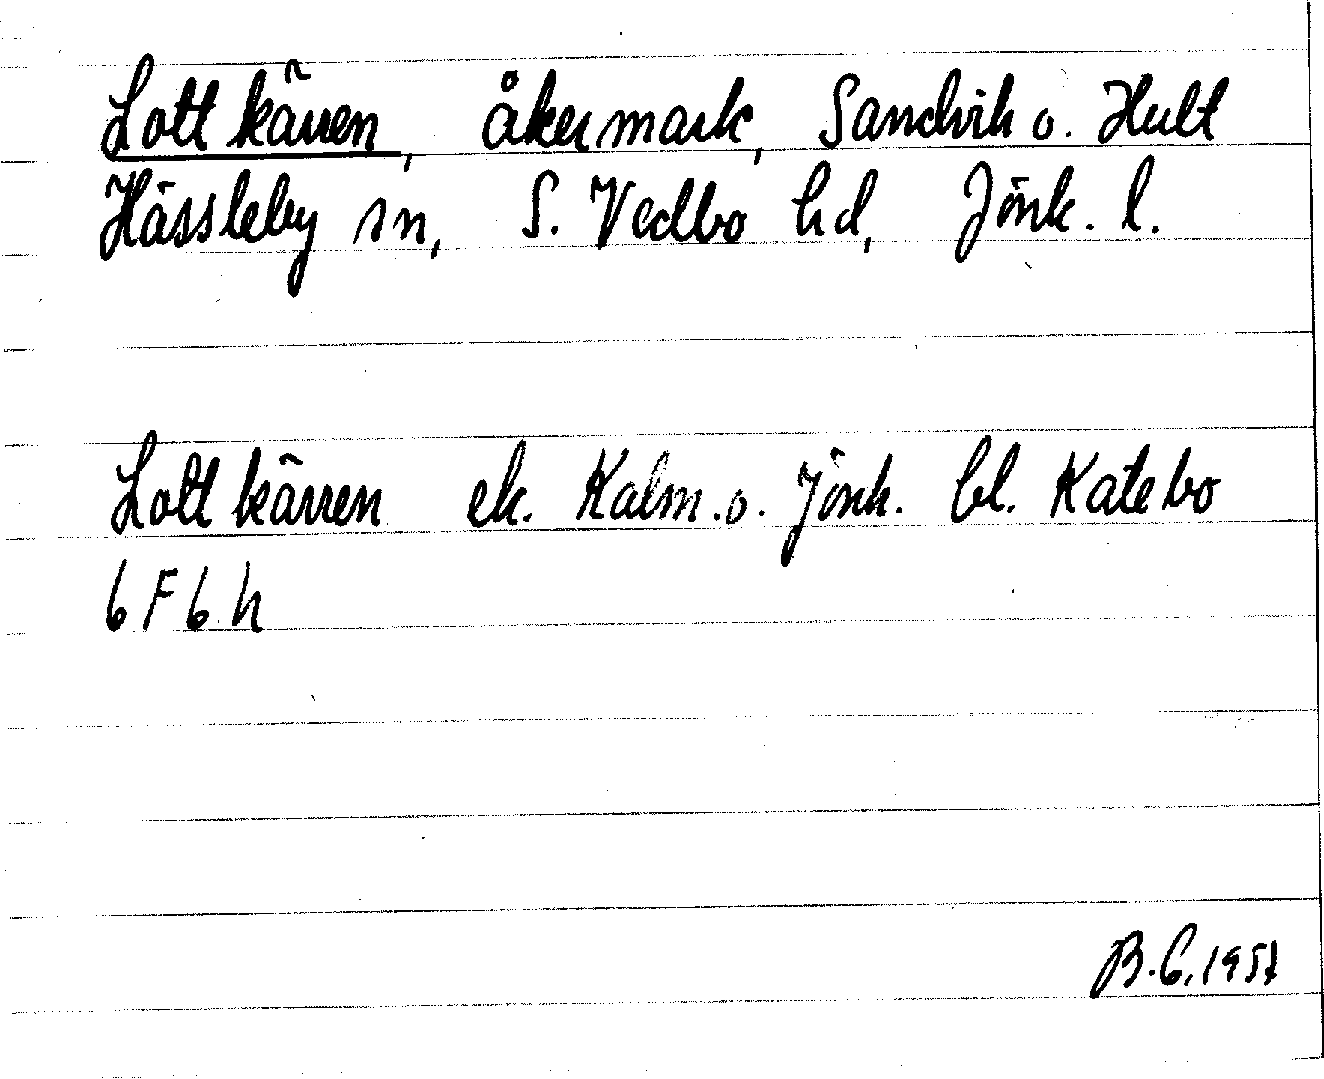 Lottkärren, åkermark, Sandvik o. Hult
Hässleby sn, S. Vedbo hd, Jönk. l.
Lottkärren ek. Kalm. o. Jönk. bl. Katebo
6 F 6 h
B.G. 1957